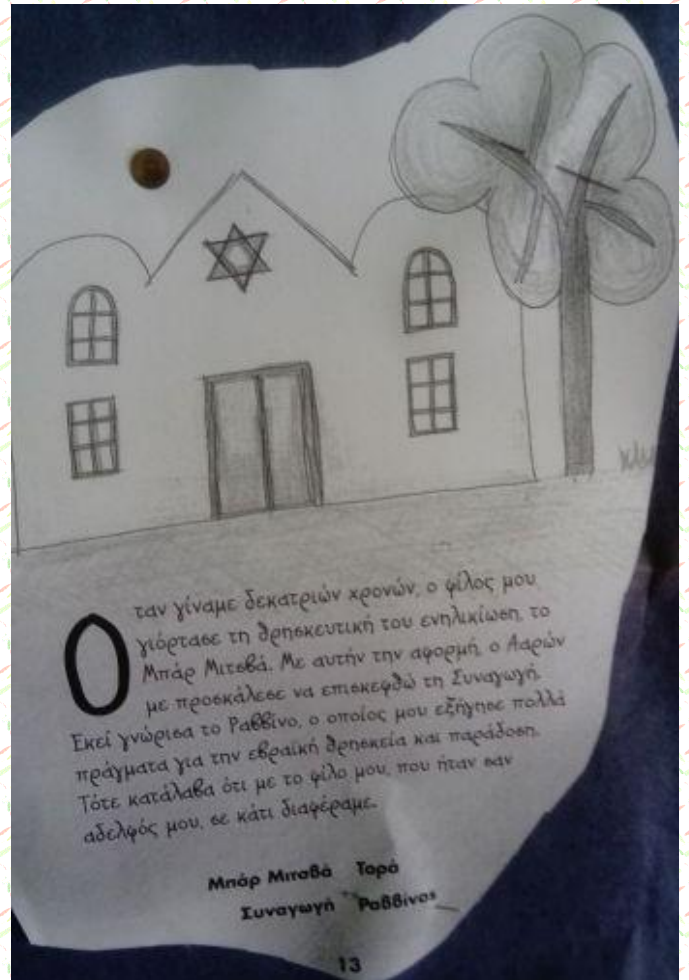 Οταν γίναμε δεκατριών χρονών, ο φίλος μου
γιόρτασε τη θρησκευτική του ενηλικίωση, το
Μπάρ Μιτσβά. Με αυτήν την αφορμή, ο Ααρών
με προσκάλεσε να επισκεφθώ τη Συναγωγή.
Εκεί γνώρισα το Ραββίνο, ο οποίος μου εξήγησε πολλά
πράγματα για την εβραϊκή θρησκεία και παράδοση.
Τότε κατάλαβα ότι με το φίλο μου, που ήταν σαν
αδελφός μου, σε κάτι διαφέραμε.
Μπάρ Μιτσβά Τορά
Συναγωγή Ραββίνος
13